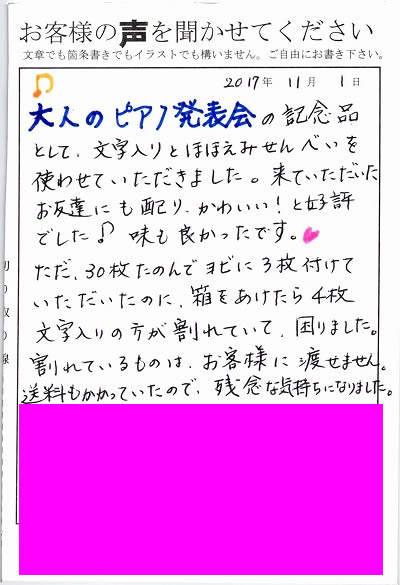 お客様の声を聞かせてください
文章でも箇条書きでもイラストでも構いません。ご自由にお書き下さい。
2017年 11月 1日
大人のピアノ発表会の記念品
として、文字入りとほほえみせんべいを
使わせていただきました。来ていただいた
お友達にも配り、かわいい!と好評
でした♪ 味も良かったです。
ただ、30枚たのんでヨビに3枚付けて
いただいたのに、箱をあけたら4枚
文字入りの方が割れていて、困りました。
割れているものは、お客様に渡せません。
送料もかかっていたので、残念な気持ちになりました。
切り取り線